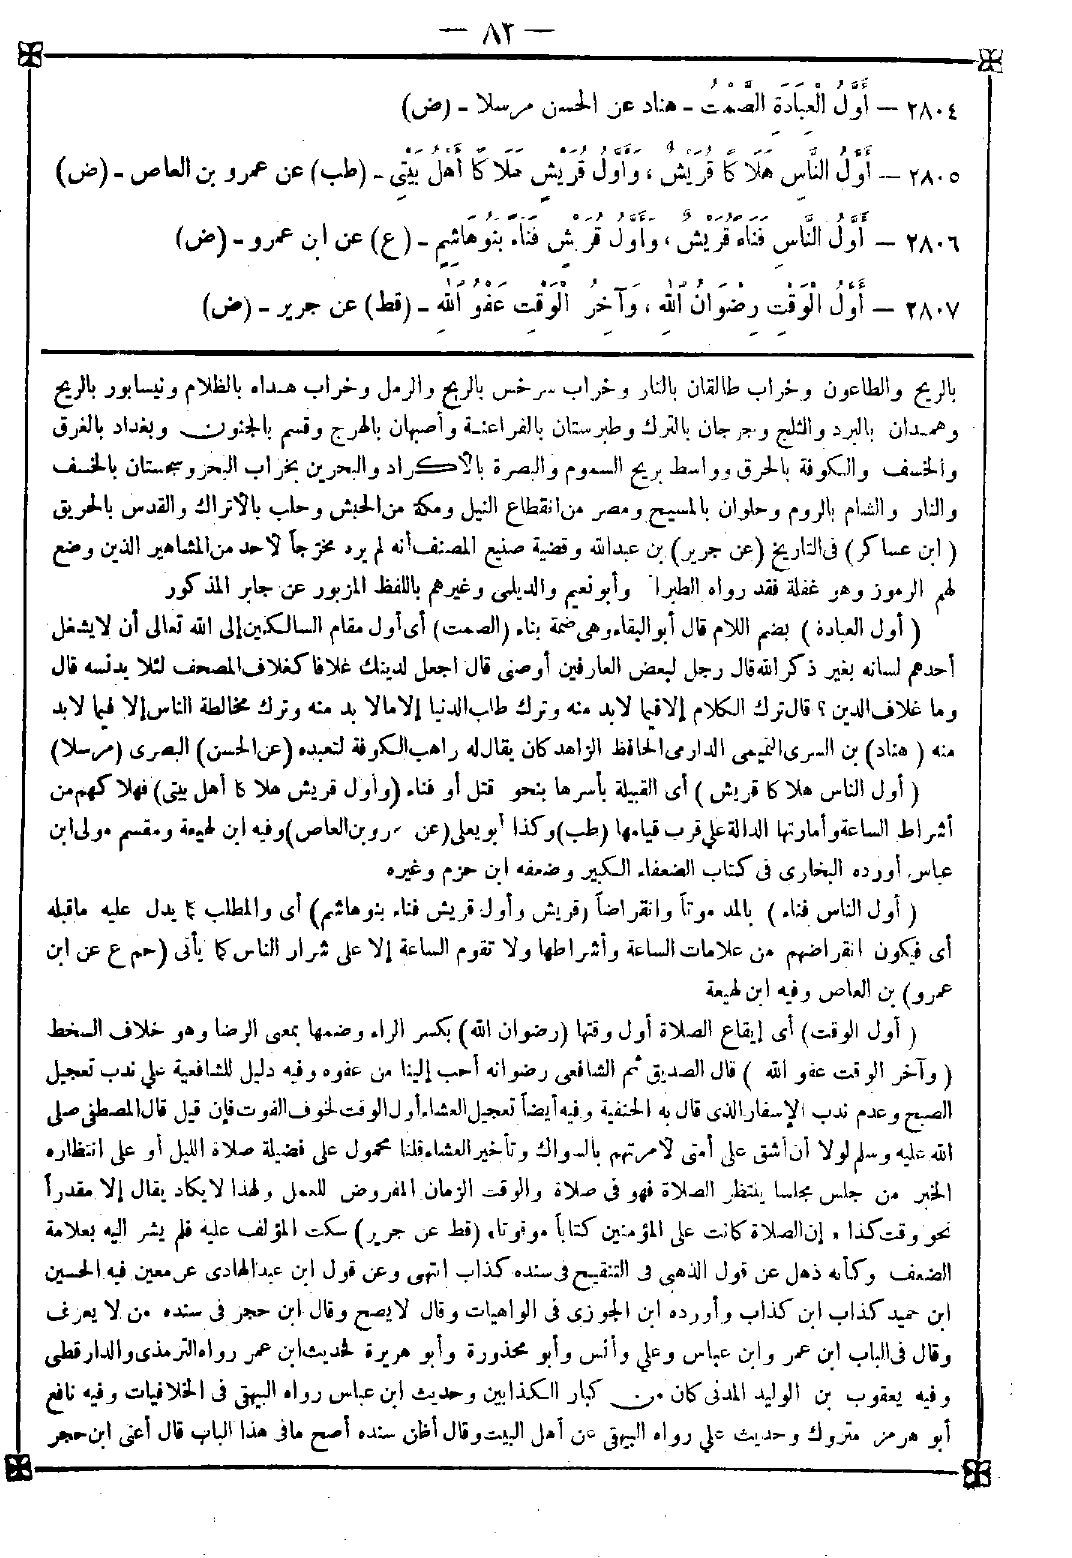 — ٨٢ —
٢٨٠٤ — أَوَّلُ الْعِبَادَةِ الصَّمْتُ - هناد عن الحسن مرسلا - (ض)
٢٨٠٥ — أَوَّلُ النَّاسِ هَلَاكًا قُرَيْشٌ ، وَأَوَّلُ قُرَيْشٍ هَلَاكًا أَهْلُ بَيْتِى - (طب) عن عمرو بن العاص - (ض)
٢٨٠٦ — أَوَّلُ النَّاسِ فَنَاءً قُرَيْشٌ ، وَأَوَّلُ قُرَيْشٍ فَنَاءً بَنُو هَاشِمٍ - (ع) عن ابن عمرو - (ض)
٢٨٠٧ — أَوَّلُ الْوَقْتِ رِضْوَانُ اللهِ ، وَآخِرُ الْوَقْتِ عَفْوُ اللهِ - (قط) عن جرير - (ض)
بالريح والطاعون وخراب طالقان بالنار وخراب سرخس بالريح والرمل وخراب هداه بالظلام ونيسابور بالريح
وهمدان بالبرد والثلج وجرجان بالترك وطبرستان بالفراعنة وأصبهان بالهرج وقسم بالجنون وبغداد بالغرق
والخسف والكوفة بالحرق وواسط بريح السموم والبصرة بالأكراد والبحرين بخراب البحر وسجستان بالخسف
والنار والشام بالروم وحلوان بالمسيح ومصر من انقطاع النيل ومكة من الحبش وحلب بالأتراك والقدس بالحريق
( ابن عساكر ) فى التاريخ (عن جرير) بن عبدالله وقضية صنيع المصنف أنه لم يره مخرّجاً لأحد من المشاهير الذين وضع
لهم الرموز وهو غفلة فقد رواه الطبرا وأبو نعيم والديلمى وغيرهم باللفظ المزبور عن جابر المذكور
( أول العبادة ) بضم اللام قال أبو البقاء وهى ضمة بناء (الصمت) أى أول مقام السالكين إلى الله تعالى أن لا يشغل
أحدهم لسانه بغير ذكر الله قال رجل لبعض العارفين أوصنى قال اجعل لدينك غلافا كغلاف المصحف لئلا يدنسه قال
وما غلاف الدين ؟ قال ترك الكلام إلا فيما لابد منه وترك طلب الدنيا إلا مالا بد منه وترك مخالطة الناس إلا فيما لابد
منه ( هناد) بن السرى التميمى الدارمى الحافظ الزاهد كان يقال له راهب الكوفة لتعبده (عن الحسن) البصرى (مرسلا)
( أول الناس هلاكا قريش ) أى القبيلة بأسرها بنحو قتل أو فناء (وأول قريش هلاكا أهل بيتى) فهلاكهم من
أشراط الساعة وأماراتها الدالة على قرب قيامها (طب) وكذا أبو يعلى (عن روبن العاص) وفيه ابن لهيعة ومقسم مولى ابن
عباس أورده البخارى فى كتاب الضعفاء الكبير وضعفه ابن حزم وغيره
( أول الناس فناء ) بالمد موتاً وانقراضاً (قريش وأول قريش فناء بنو هاشم) أى والمطلب كما يدل عليه ماقبله
أى فيكون انقراضهم من علامات الساعة وأشراطها ولا تقوم الساعة إلا على شرار الناس كما يأتى (حم ع عن ابن
عمرو) بن العاص وفيه ابن لهيعة
( أول الوقت) أى إيقاع الصلاة أول وقتها (رضوان الله) بكسر الراء وضمها بمعنى الرضا وهو خلاف السخط
( وآخر الوقت عفو الله ) قال الصديق ثم الشافعى رضوانه أحب إلينا من عفوه وفيه دليل للشافعية على ندب تعجيل
الصبح وعدم ندب الإسفار الذى قال به الحنفية وفيه أيضاً تعجيل العشاء أول الوقت لخوف الفوت فإن قيل قال المصطفى صلى
الله عليه وسلم لولا أن أشق على أمتى لأمرتهم بالسواك وتأخير العشاء قلنا محمول على فضيلة صلاة الليل أو على انتظاره
الخبر من جلس مجلسا ينتظر الصلاة فهو فى صلاة والوقت الزمان المفروض للعمل ولهذا لا يكاد يقال إلا مقدراً
نحو وقت كذا ، إن الصلاة كانت على المؤمنين كتاباً موقوتا، (قط عن جرير) سكت المؤلف عليه فلم يشر اليه بعلامة
الضعف وكأنه ذهل عن قول الذهبى فى التنقيح فى سنده كذاب انتهى وعن قول ابن عبد الهادى عن معين فيه الحسين
ابن حميد كذاب ابن كذاب وأورده ابن الجوزى فى الواهيات وقال لا يصح وقال ابن حجر فى سنده من لا يعرف
وقال فى الباب ابن عمر وابن عباس وعلي وأنس وأبو محذورة وأبو هريرة لحديث ابن عمر رواه الترمذى والدارقطى
وفيه يعقوب بن الوليد المدنى كان من كبار الكذابين وحديث ابن عباس رواه البيهقى فى الخلافيات وفيه نافع
أبو هرمز متروك وحديث على رواه البيهقى عن أهل البيت وقال أظن سنده أصح مافى هذا الباب قال أعنى ابن حجر